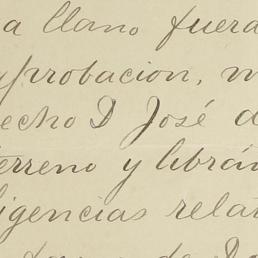 a llano fuera
probacion, m
echo D José d
terreno y librán
igencias relat
de D